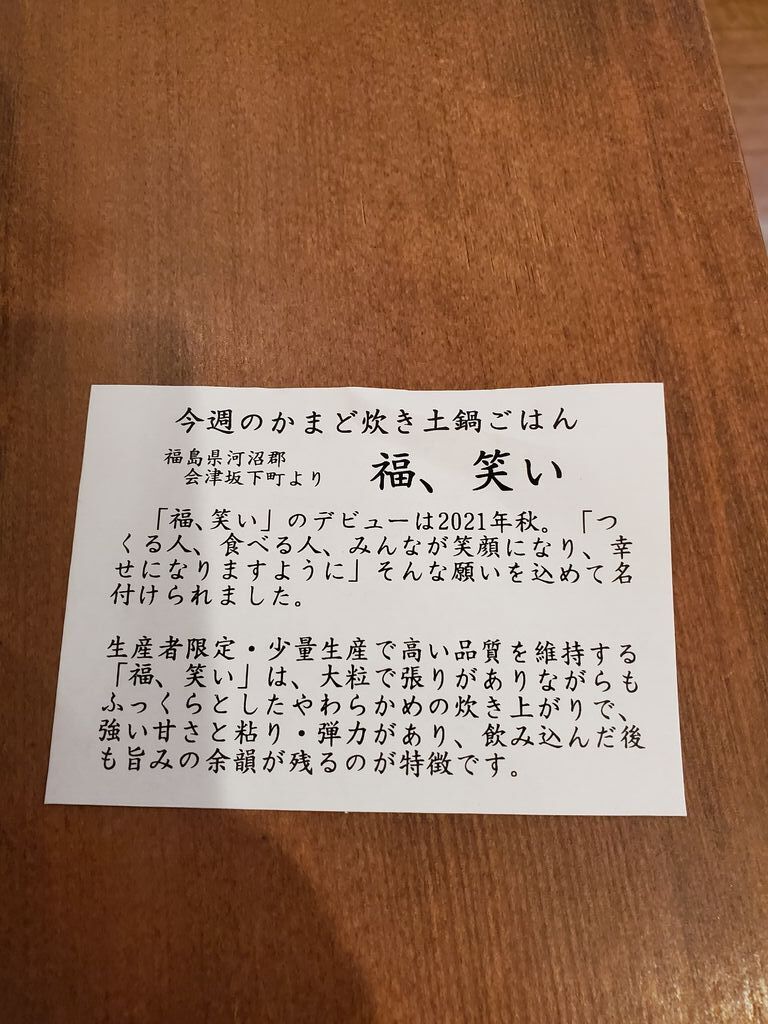 今週のかまど炊き土鍋ごはん
福島県河沼郡
会津坂下町より
福、笑い
「福、笑い」のデビューは2021年秋。「つ
くる人、食べる人、みんなが笑顔になり、幸
せになりますように」そんな願いを込めて名
付けられました。
生産者限定・少量生産で高い品質を維持する
「福、笑い」は、大粒で張りがありながらも
ふっくらとしたやわらかめの炊き上がりで、
強い甘さと粘り・弾力があり、飲み込んだ後
も旨みの余韻が残るのが特徴です。